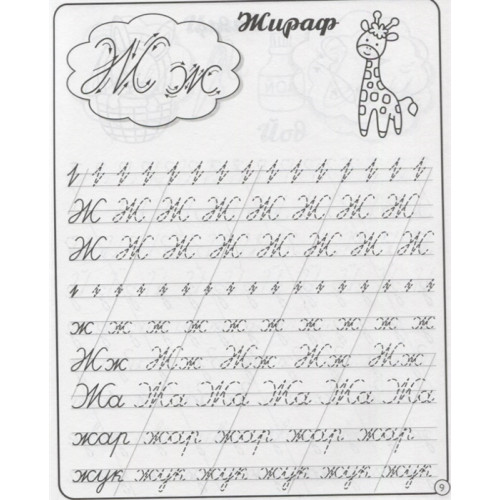 Жж Жираф
Ж Ж Ж Ж Ж Ж Ж Ж Ж
Ж Ж Ж Ж Ж Ж Ж Ж Ж
ж ж ж ж ж ж ж ж ж ж
Жж Жж Жж Жж Жж
Жа Жа Жа Жа Жа Жа
жар жар жар жар жар
жук жук жук жук жук жук
9